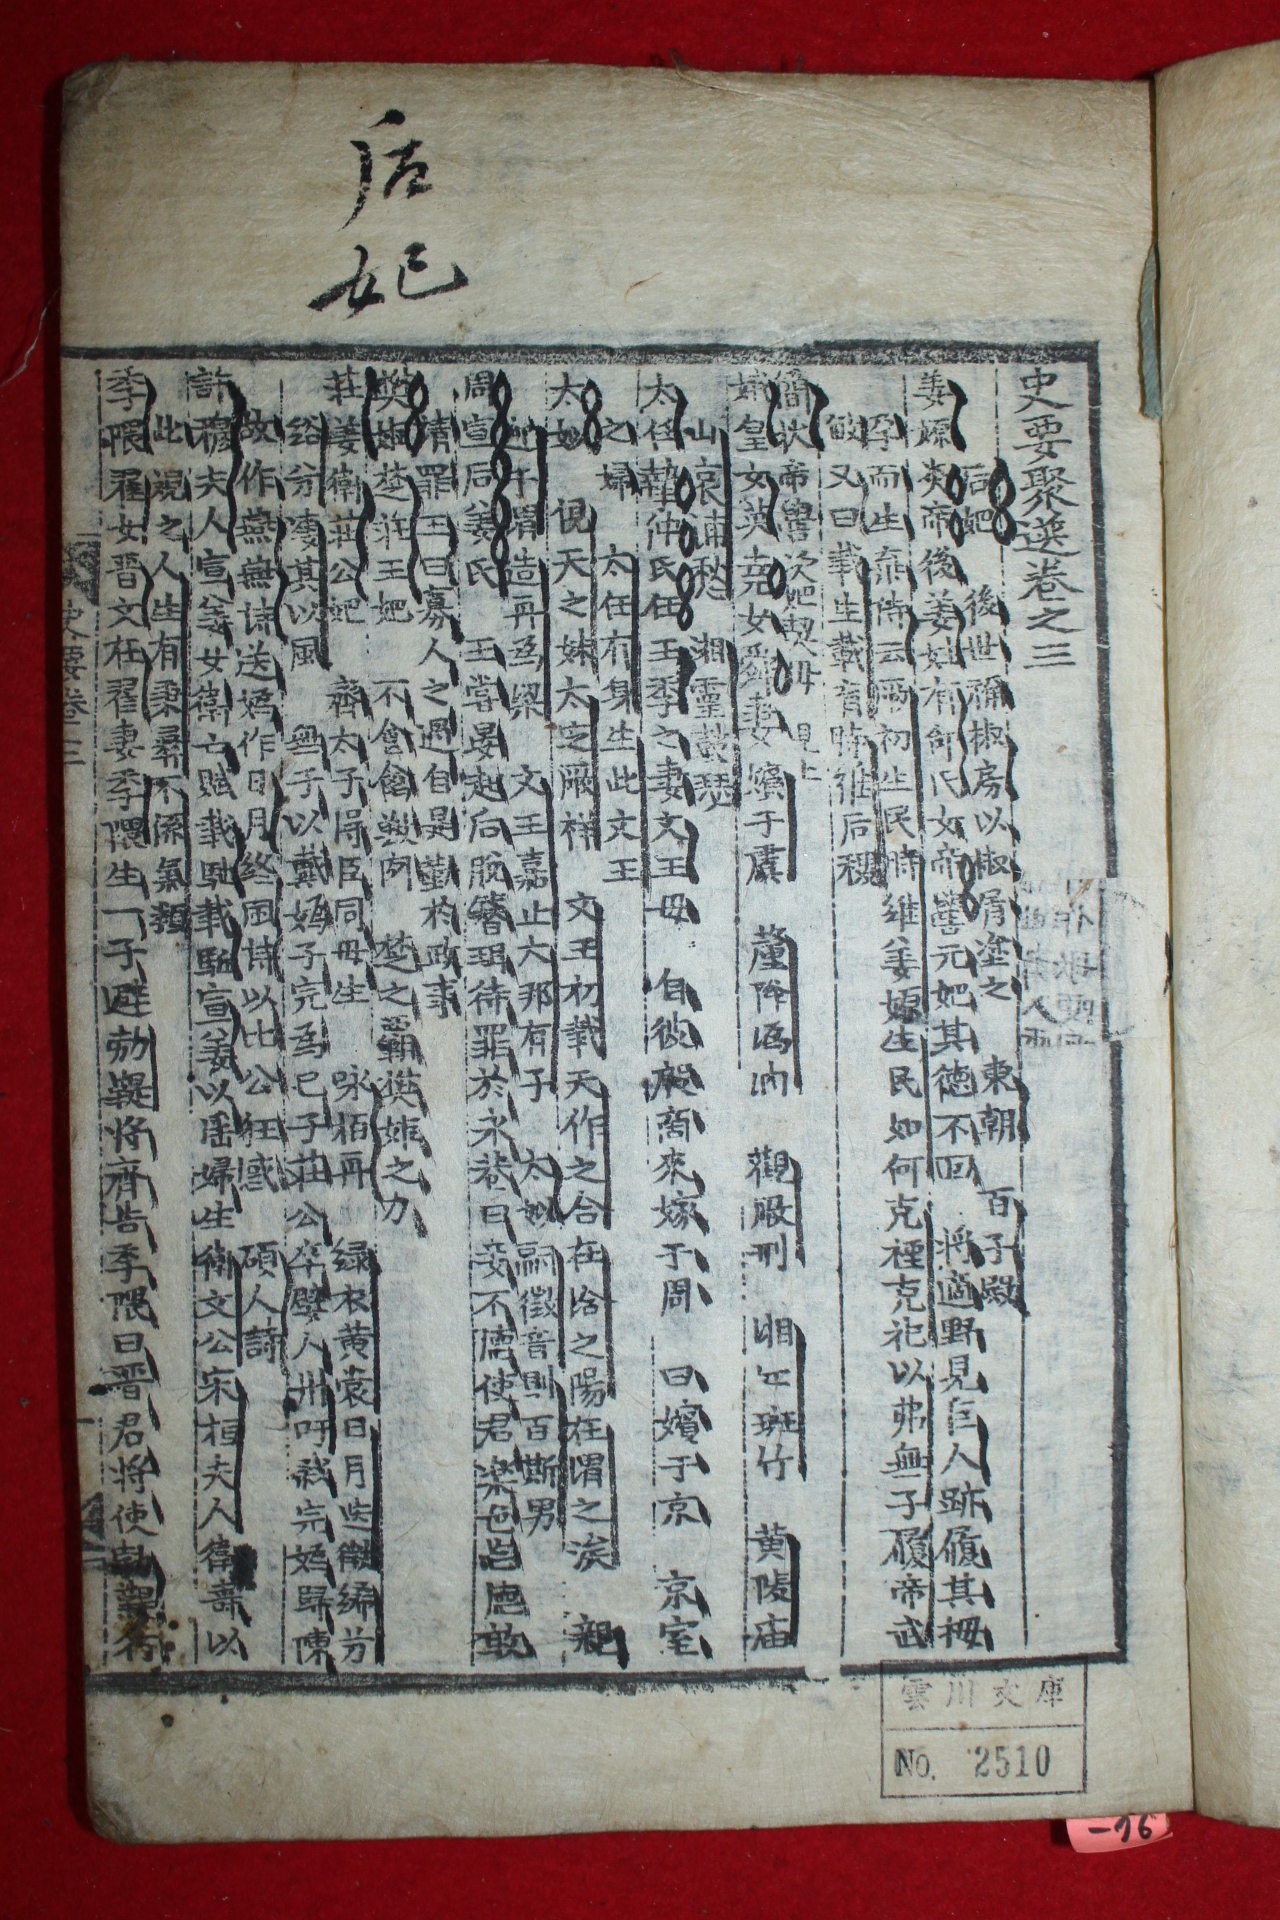 后妃
史要聚選卷之三
后妃 後世稱椒房以椒屑塗之 東朝 百子殿
姜嫄炎帝後姜姓有邰氏女帝嚳元妃其德不回 將適野見巨人跡履其拇
孕而生棄詩云厥初生民時維姜嫄生民如何克禋克祀以弗無子履帝武
敏又曰載生載育時維后稷
簡狄帝嚳次妃契母 見上
娥皇女英堯女舜妻嬪于虞 釐降嬀汭 觀厥刑 湘江班竹 黃陵庙
山哀浦愁 湘靈鼓瑟
太任摯仲氏任王季之妻文王母 自彼殷商來嫁于周 曰嬪于京 京室
之婦 太任有身生此文王
太姒 俔天之妹太定厥祥 文王初載天作之合在洽之陽在渭之涘 親
迎于渭造舟爲梁 文王嘉止大邦有子 太姒嗣徽音則百斯男
周宣后姜氏 王嘗晏起后脫簪珥待罪於永巷曰妾不德使君樂色忘德敢
請罪王曰寡人之過自是勤於政事
樊姬楚莊王妃 不食禽獸肉 楚之霸樊姬之力
莊姜衛莊公妃 齊太子得臣同母生 咏栢舟 綠衣黃裳日月迭微絺兮
綌兮凄其以風 無子以戴嬀子完爲已子莊公卒嬖人州吁弒完嬀歸陳
故作燕燕詩送嬀作日月終風詩以比公狂惑 碩人詩
許穆夫人宣姜女衛亡賦載馳載驅宣姜以淫婦生衛文公宋桓夫人衛壽以
此觀之人生有秉彛不係氣類
季隈翟女晋文在翟妻季隈生一子避勃鞮將齊告季隈曰晋君將使勃鞮行
史要卷三
雲川文庫
No. 2510
-76